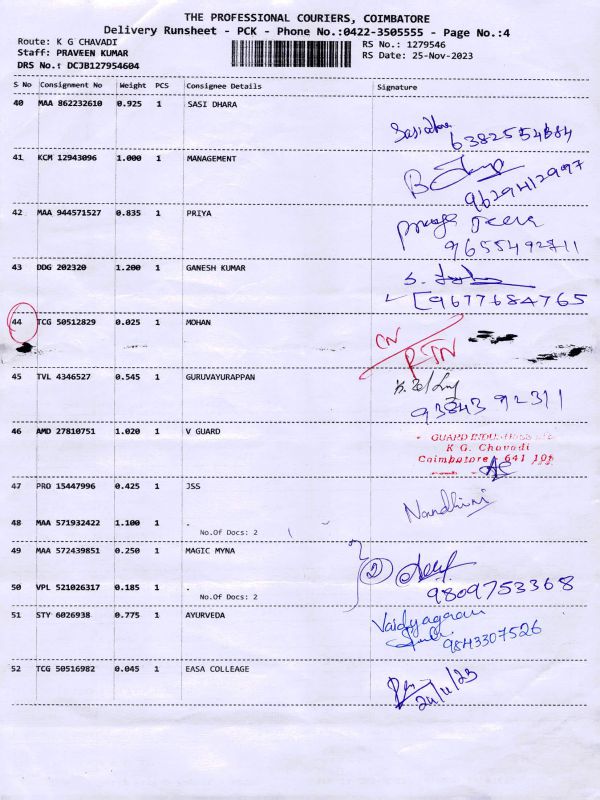 THE PROFESSIONAL COURIERS, COIMBATORE
Delivery Runsheet - PCK - Phone No.:0422-3505555 - Page No.:4
Route: K G CHAVADI
Staff: PRAVEEN KUMAR
DRS No.: DCJB127954604
RS No.: 1279546
RS Date: 25-Nov-2023
S No Consignment No Weight PCS Consignee Details Signature
40 MAA 862232610 0.925 1 SASI DHARA
41 KCM 12943096 1.000 1 MANAGEMENT
9629412997
42 MAA 944571527 0.835 1 PRIYA
9655492711
43 DDG 202320 1.200 1 GANESH KUMAR
9677684765
44 TCG 50512829 0.025 1 MOHAN
CN
RTN
45 TVL 4346527 0.545 1 GURUVAYURAPPAN
93843 92311
46 AMD 27810751 1.020 1 V GUARD
GUARD
K G. Chavadi
Coimbatore 641 105
47 PRO 15447996 0.425 1 JSS
Nandhini
48 MAA 571932422 1.100 1 .
No.Of Docs: 2
49 MAA 572439851 0.250 1 MAGIC MYNA
2
9809753368
50 VPL 521026317 0.185 1 .
No.Of Docs: 2
51 STY 6026938 0.775 1 AYURVEDA
Vaidyagram
9843307526
52 TCG 50516982 0.045 1 EASA COLLEAGE
24/11/23